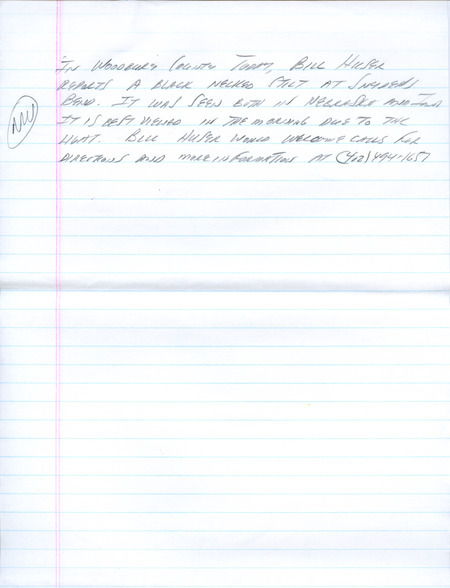 In Woodbury County Today, Bill Huser
reports a Black Necked Stilt at Snyders
Bend. It was seen both in Nebraska and Iowa
It is best viewed in the morning due to the
light. Bill Huser would welcome calls for
directions and more information at (402) 494-1657